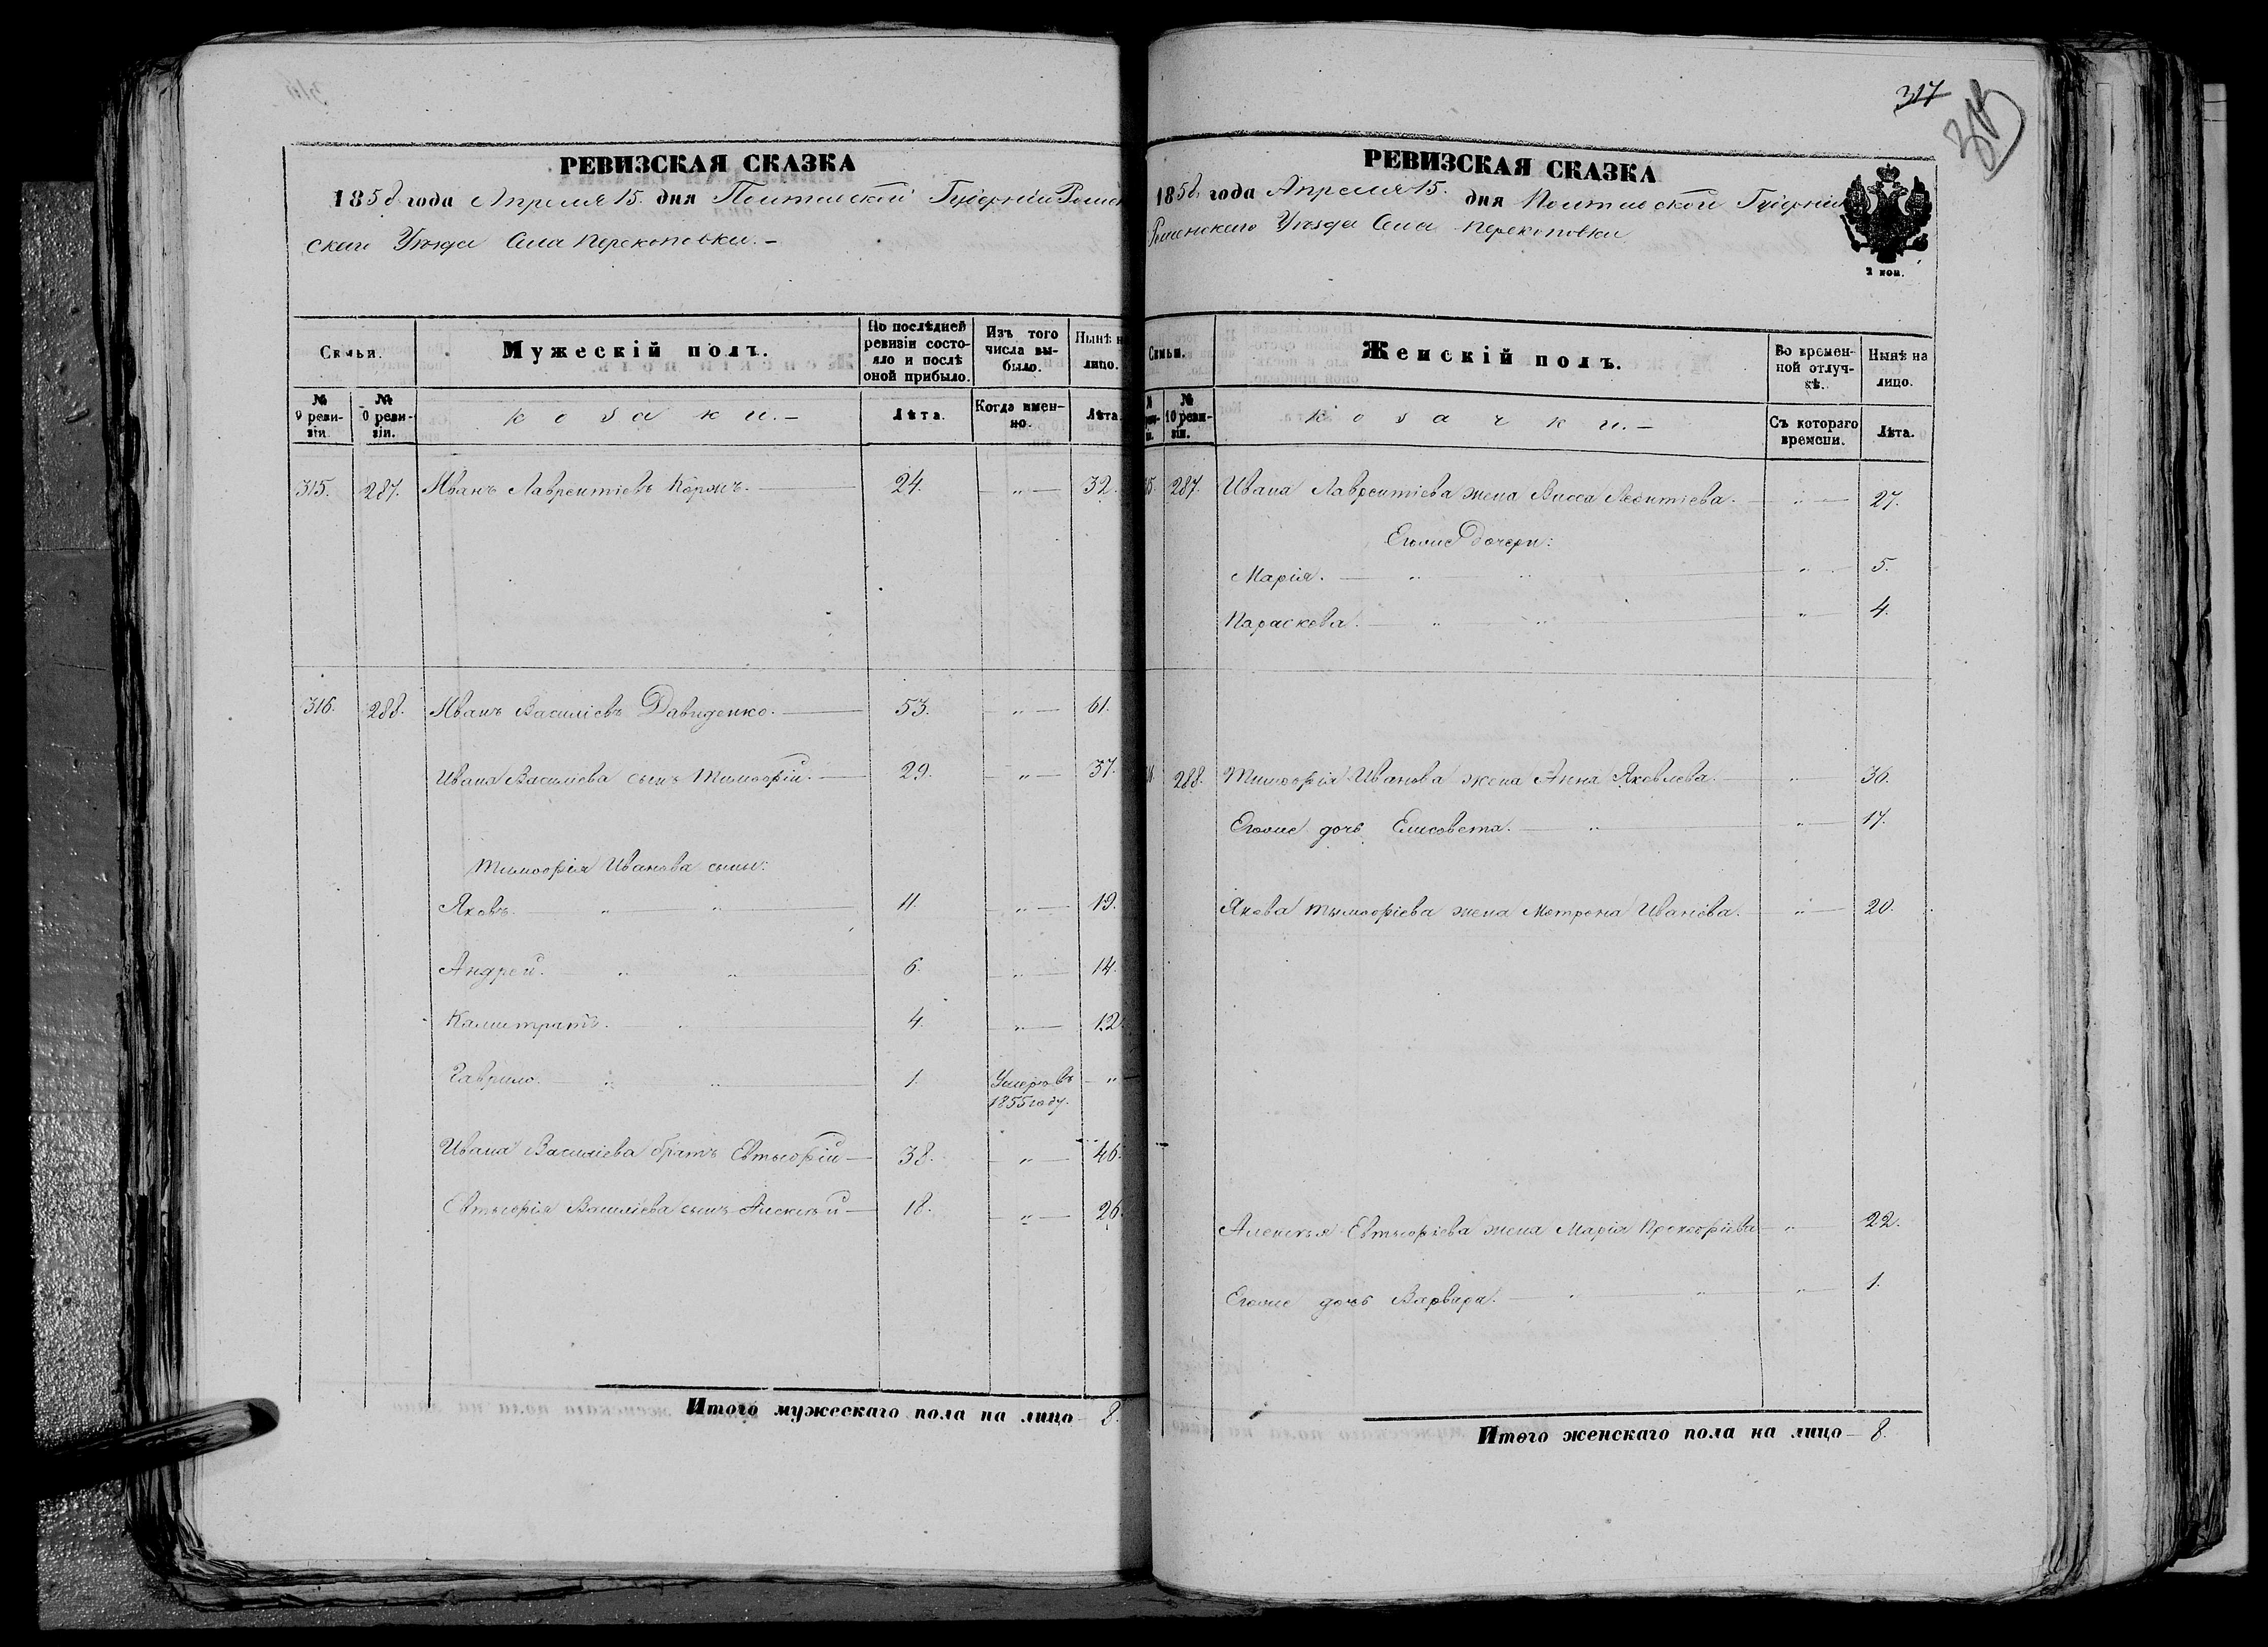 РЕВИЗСКАЯ СКАЗКА
1858 года Апреля 15. дня Полтавской Губерніи Ромен
скаго Уѣзда Села Перекоповки. –
Семьи.
Мужескій полъ.
По послѣдней ревизіи состояло и послѣ оной прибыло.
Изъ того числа выбыло.
Нынѣ на лицо.
№ 9 ревизіи.
№ 10 ревизіи.
козаки. –
Лѣта.
Когда именно.
Лѣта.
315. 287. Иванъ Лаврентіевъ Коржъ. 24. „ 32.
316. 288. Иванъ Василіевъ Давиденко. 53. „ 61.
Ивана Василіева сынъ Тимофій. 29. „ 37.
Тимофія Иванова сыны:
Яковъ. „ „ 11. „ 19.
Андрей. „ „ 6. „ 14.
Калистратъ. „ 4. „ 12.
Гаврило. „ „ 1. Умеръ въ „
1855 году.
Ивана Василіева братъ Евтыфій 38. „ 46.
Евтыфія Василіева сынъ Алексѣй 18. „ 26.
Итого мужескаго пола на лицо 8.
317
РЕВИЗСКАЯ СКАЗКА
1858 года Апреля 15. дня Полтавской Губерніи
Роменскаго Уѣзда Села Перекоповки
2 коп.
Семьи.
Женскій полъ.
Во временной отлучкѣ.
Нынѣ на лицо.
№ 10 ревизіи.
козачки. –
Съ котораго времени.
Лѣта.
287. Ивана Лаврентіева жена Васса Леонтіева. „ 27.
Егоже дочери:
Марія. „ „ „ 5.
Параскева. „ „ „ 4.
288. Тимофія Иванова жена Анна Яковлева. „ 36.
Егоже дочь Елисовета. „ „ 17.
Якова Тымофіева жена Мотрона Иванова. „ 20.
Алексѣя Евтыфіева жена Марія Прокофіева „ 22.
Егоже дочь Варвара. „ „ „ 1.
Итого женскаго пола на лицо 8.